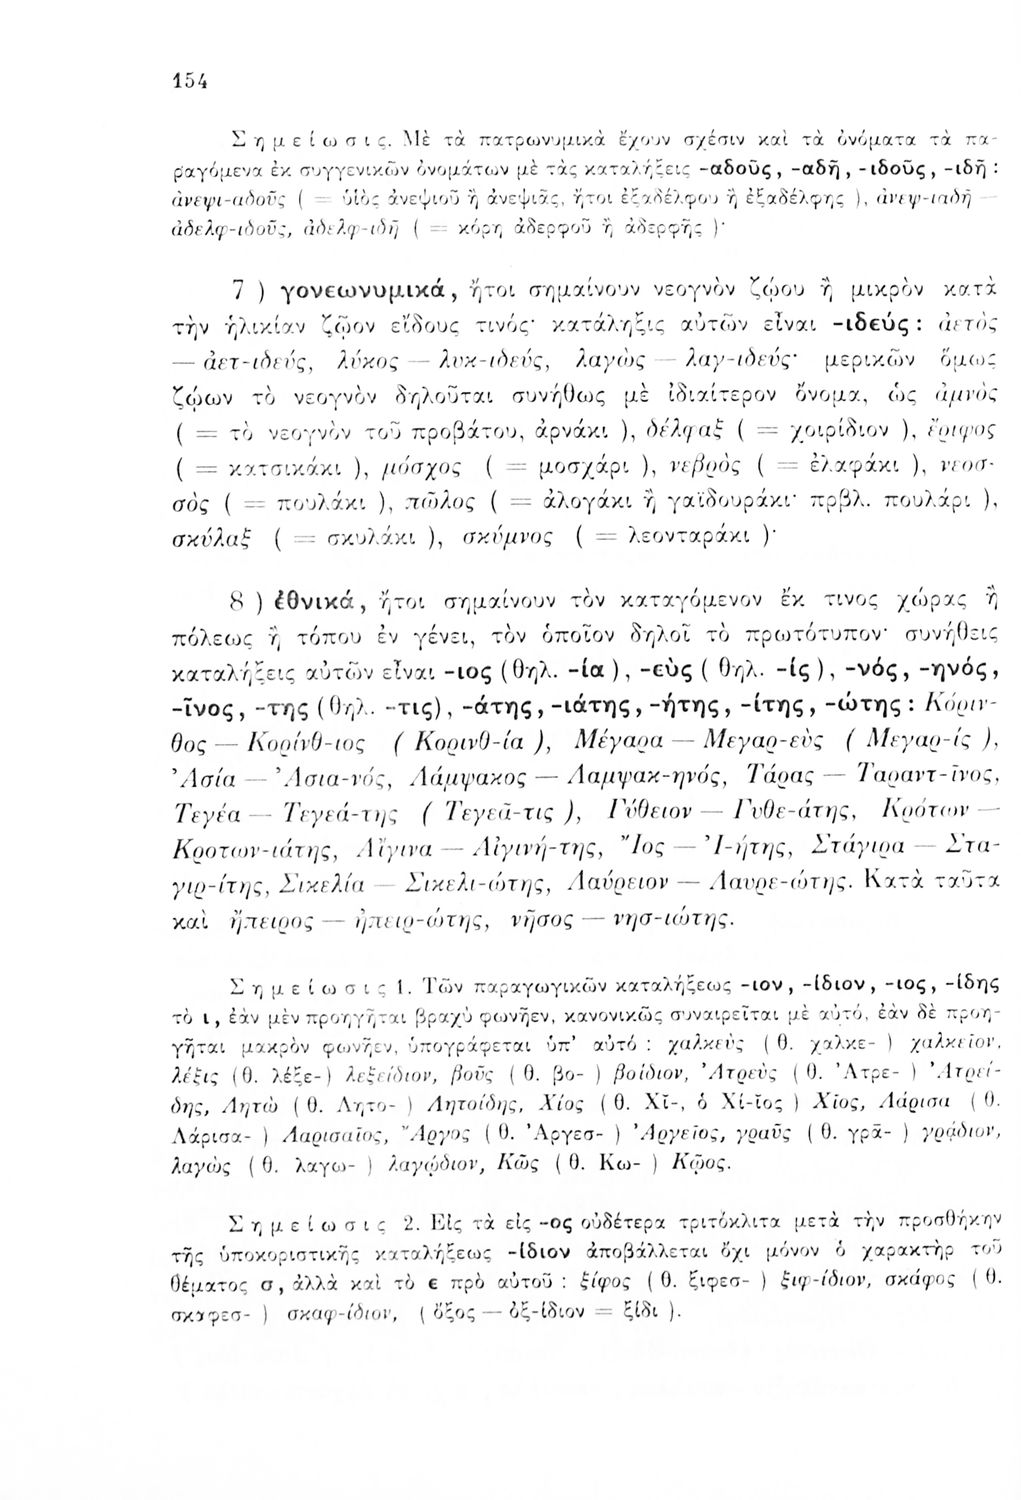 154
Σημείωσις. Μὲ τὰ πατρωνυμικὰ ἔχουν σχέσιν καὶ τὰ ὀνόματα τὰ πα-
ραγόμενα ἐκ συγγενικῶν ὀνομάτων μὲ τὰς καταλήξεις -αδοῦς, -αδῆ, -ιδοῦς, -ιδῆ :
ἀνεψι-αδοῦς ( = ὑἱὸς ἀνεψιοῦ ἢ ἀνεψιᾶς, ἤτοι ἐξαδέλφου ἢ ἐξαδέλφης ), ἀνεψ-ιαδῆ —
ἀδελφ-ιδοῦς, ἀδελφ-ιδῆ ( = κόρη ἀδερφοῦ ἢ ἀδερφῆς )·
7 ) γονεωνυμικά, ἤτοι σημαίνουν νεογνὸν ζῴου ἢ μικρὸν κατὰ
τὴν ἡλικίαν ζῷον εἴδους τινός· κατάληξις αὐτῶν εἶναι -ιδεύς : ἀετὸς
— ἀετ-ιδεύς, λύκος — λυκ-ιδεύς, λαγὼς — λαγ-ιδεύς· μερικῶν ὅμως
ζῴων τὸ νεογνὸν δηλοῦται συνήθως μὲ ἰδιαίτερον ὄνομα, ὡς ἀμνὸς
( = τὸ νεογνὸν τοῦ προβάτου, ἀρνάκι ), δέλφαξ ( = χοιρίδιον ), ἔριφος
( = κατσικάκι ), μόσχος ( = μοσχάρι ), νεβρὸς ( = ἐλαφάκι ), νεοσ-
σὸς ( = πουλάκι ), πῶλος ( = ἀλογάκι ἢ γαϊδουράκι· πρβλ. πουλάρι ),
σκύλαξ ( = σκυλάκι ), σκύμνος ( = λεονταράκι )·
8 ) ἐθνικά, ἤτοι σημαίνουν τὸν καταγόμενον ἔκ τινος χώρας ἢ
πόλεως ἢ τόπου ἐν γένει, τὸν ὁποῖον δηλοῖ τὸ πρωτότυπον· συνήθεις
καταλήξεις αὐτῶν εἶναι -ιος (θηλ. -ία ), -εὺς ( θηλ. -ίς ), -νός, -ηνός,
-ῖνος, -της (θηλ. -τις), -άτης, -ιάτης, -ήτης, -ίτης, -ώτης : Κόριν-
θος — Κορίνθ-ιος ( Κορινθ-ία ), Μέγαρα — Μεγαρ-εὺς ( Μεγαρ-ίς ),
Ἀσία — Ἀσια-νός, Λάμψακος — Λαμψακ-ηνός, Τάρας — Ταραντ-ῖνος,
Τεγέα — Τεγεά-της ( Τεγεᾶ-τις ), Γύθειον — Γυθε-άτης, Κρότων —
Κροτων-ιάτης, Αἴγινα — Αἰγινή-της, Ἴος — Ἰ-ήτης, Στάγιρα — Στα-
γιρ-ίτης, Σικελία — Σικελι-ώτης, Λαύρειον — Λαυρε-ώτης. Κατὰ ταῦτα
καὶ ἤπειρος — ἠπειρ-ώτης, νῆσος — νησ-ιώτης.
Σημείωσις 1. Τῶν παραγωγικῶν καταλήξεως -ιον, -ίδιον, -ιος, -ίδης
τὸ ι, ἐὰν μὲν προηγῆται βραχὺ φωνῆεν, κανονικῶς συναιρεῖται μὲ αὐτό, ἐὰν δὲ προη-
γῆται μακρὸν φωνῆεν, ὑπογράφεται ὑπ’ αὐτό : χαλκεὺς ( θ. χαλκε- ) χαλκεῖον,
λέξις (θ. λέξε-) λεξείδιον, βοῦς ( θ. βο- ) βοίδιον, Ἀτρεὺς ( θ. Ἀτρε- ) Ἀτρεί-
δης, Λητὼ ( θ. Λητο- ) Λητοίδης, Χίος ( θ. Χῑ-, ὁ Χί-ῐος ) Χῖος, Λάρισα ( θ.
Λάρισα- ) Λαρισαῖος, Ἄργος ( θ. Ἀργεσ- ) Ἀργεῖος, γραῦς ( θ. γρᾱ- ) γρᾴδιον,
λαγὼς ( θ. λαγω- ) λαγῴδιον, Κῶς ( θ. Κω- ) Κῷος.
Σημείωσις 2. Εἰς τὰ εἰς -ος οὐδέτερα τριτόκλιτα μετὰ τὴν προσθήκην
τῆς ὑποκοριστικῆς καταλήξεως -ίδιον ἀποβάλλεται ὄχι μόνον ὁ χαρακτὴρ τοῦ
θέματος σ, ἀλλὰ καὶ τὸ ε πρὸ αὐτοῦ : ξίφος ( θ. ξιφεσ- ) ξιφ-ίδιον, σκάφος ( θ.
σκαφεσ- ) σκαφ-ίδιον, ( ὄξος — ὀξ-ίδιον = ξίδι ).